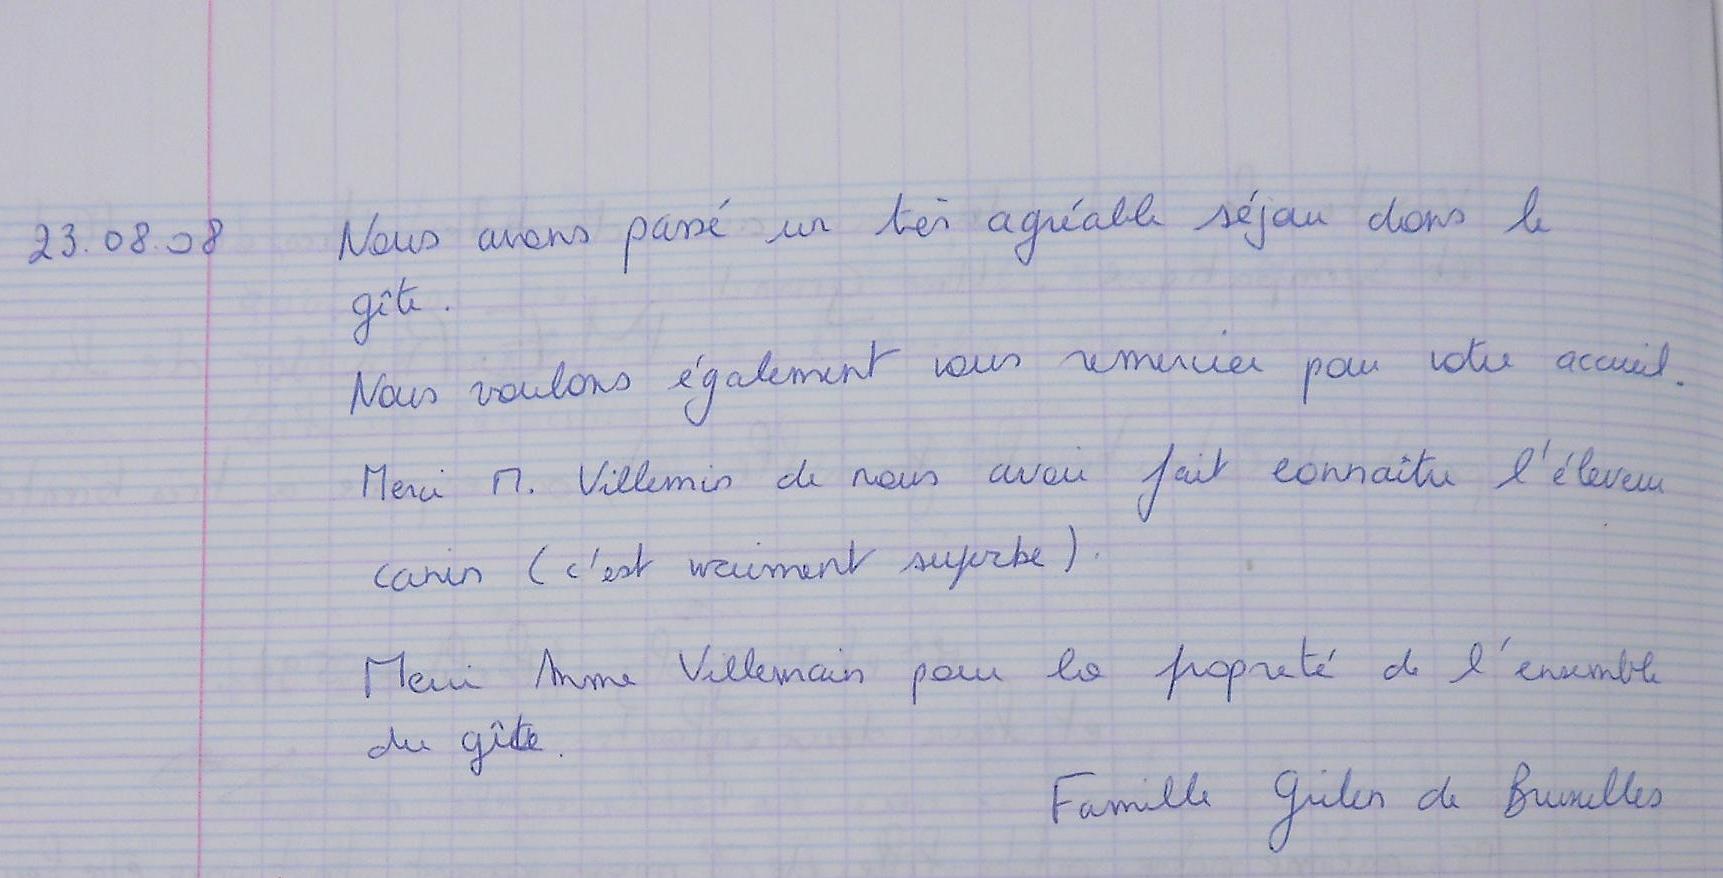 23.08.08 Nous avons passé un très agréable séjour dans le
gîte.
Nous voulons également vous remercier pour votre accueil.
Merci M. Villemin de nous avoir fait connaître l'éleveur
canin (c'est vraiment superbe).
Merci Mme Villemain pour la propreté de l'ensemble
du gîte.
Famille de Bruxelles